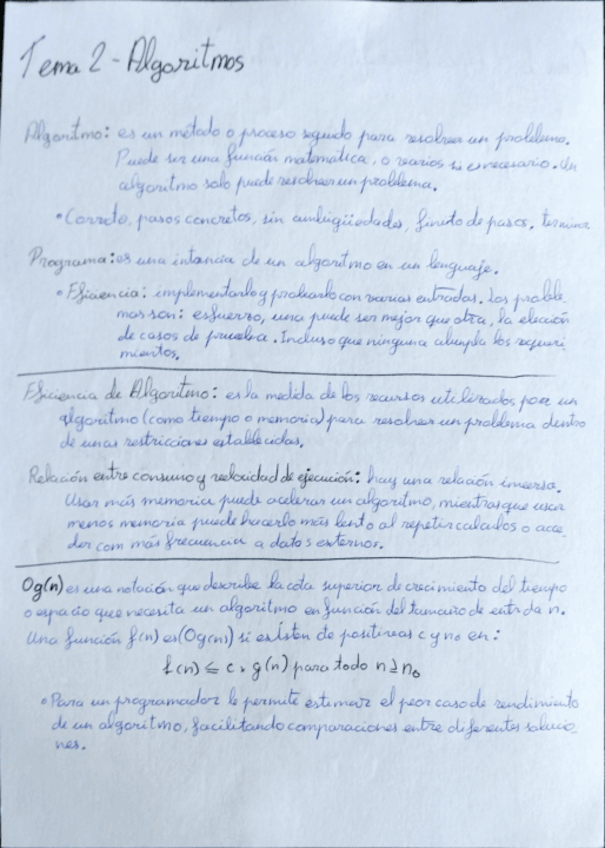 Tema 2 - Algoritmos
Algoritmo: es un método o proceso seguido para resolver un problema.
Puede ser una función matemática, o varios si es necesario. Un
algoritmo solo puede resolver un problema.
• Correcto, pasos concretos, sin ambigüedades, finito de pasos, termina
Programa: es una intancia de un algoritmo en un lenguaje.
• Eficiencia: implementarlo y probarlo con varias entradas. Los proble-
mas son: esfuerzo, una puede ser mejor que otra, la elección
de casos de prueba. Incluso que ninguna cumpla los requeri-
mientos.
Eficiencia de Algoritmo: es la medida de los recursos utilizados por un
algoritmo (como tiempo o memoria) para resolver un problema dentro
de unas restricciones establecidas.
Relación entre consumo y velocidad de ejecución: hay una relación inversa.
Usar más memoria puede acelerar un algoritmo, mientras que usar
menos memoria puede hacerlo más lento al repetir calculos o acce-
der com más frecuencia a datos externos.
Og(n) es una notación que describe la cota superior de crecimiento del tiempo
o espacio que necesita un algoritmo en función del tamaño de entrada n.
Una función f(n) es (Og(n)) si existen de positivas c y n₀ en:
f(n) ≤ c × g(n) para todo n ≥ n₀
• Para un programador le permite estimar el peor caso de rendimiento
de un algoritmo, facilitando comparaciones entre diferentes solucio-
nes.